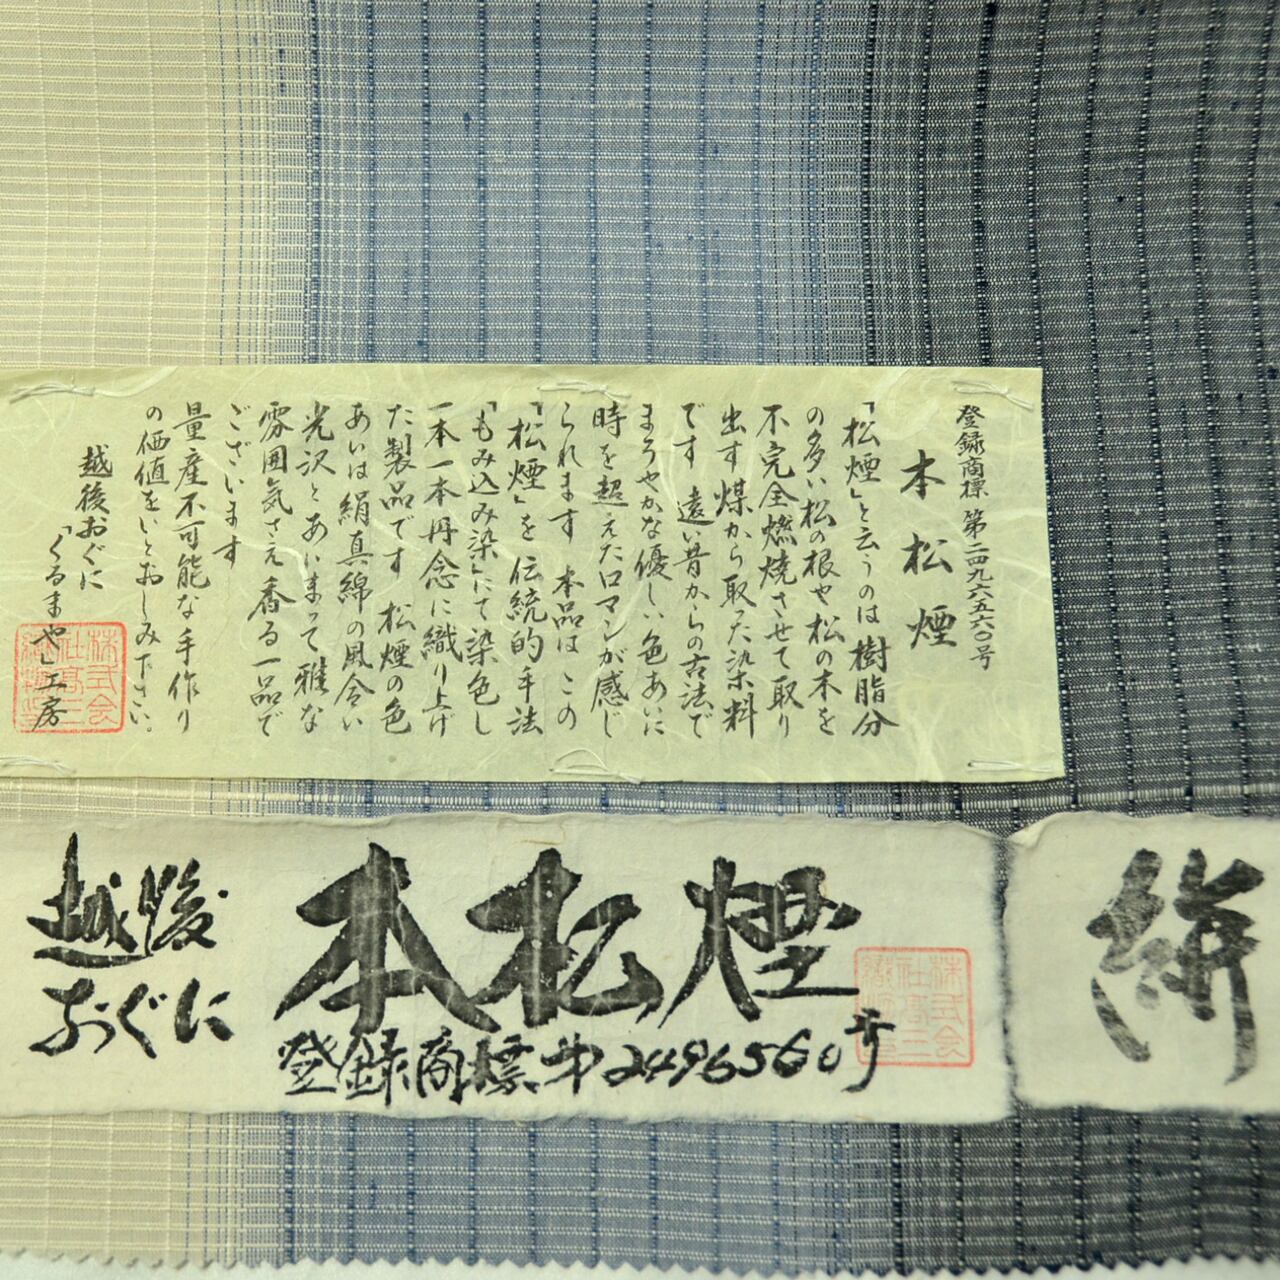 登録商標 第二四九六五六〇号
本松煙
「松煙」と云うのは樹脂分
の多い松の根や松の木を
不完全燃焼させて取り
出す煤から取った染料
です 遠い昔からの古法で
まろやかな優しい色あいに
時を超えたロマンが感じ
られます 本品は この
「松煙」を 伝統的手法
「もみ込み染」にて染色し
一本一本丹念に織り上げ
た製品です 松煙の色
あいは絹真綿の風合い
光沢とあいまって雅な
雰囲気さえ香る一品で
ございます
量産不可能な手作り
の価値をいとおしみ下さい。
越後おぐに
「くるまや」工房
株式会
社高三
織物
越後
おぐに
本松煙
登録商標第2496560号
株式会
社高三
織物
絣